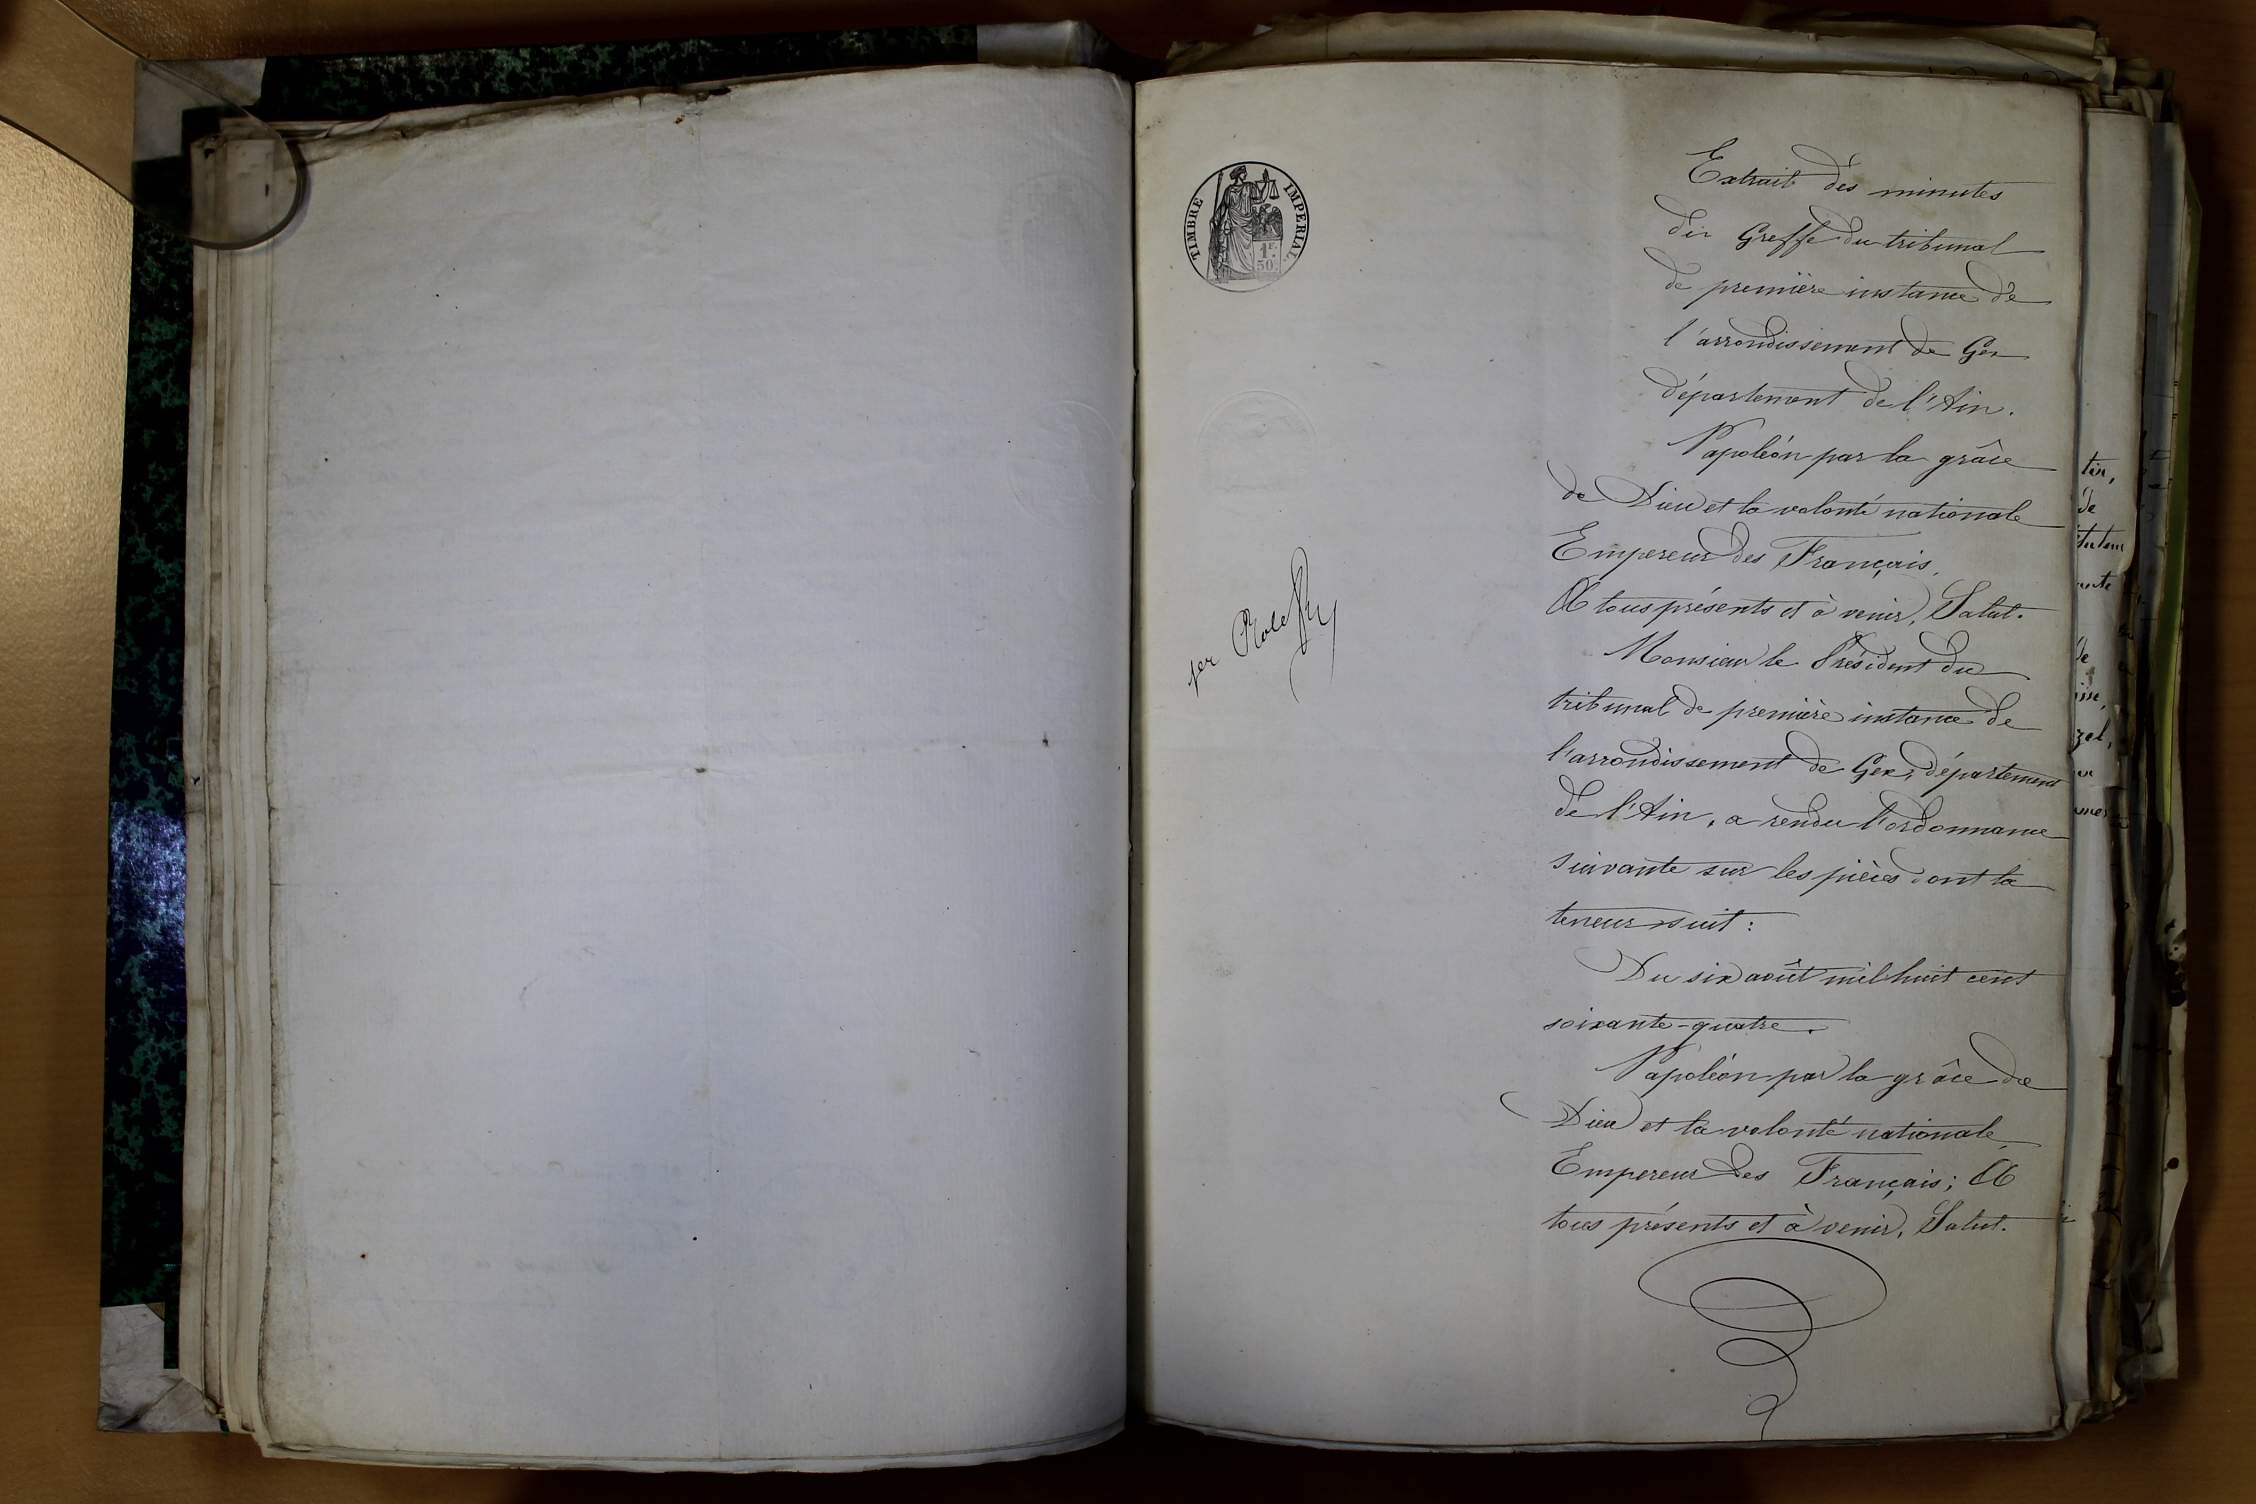 TIMBRE IMPERIAL
1F.
50c
Extrait des minutes
du Greffe du tribunal
de première instance de
l'arrondissement de Gex
département de l'Ain.
Napoléon par la grâce
de Dieu et la volonté nationale
Empereur des Français,
A tous présents et à venir, Salut.
Monsieur le Président du
tribunal de première instance de
l'arrondissement de Gex, département
de l'Ain, a rendu l'ordonnance
suivante sur les pièces dont la
teneur suit :
Du six août mil huit cent
soixante-quatre.
Napoléon par la grâce de
Dieu et la volonté nationale,
Empereur des Français; A
tous présents et à venir, Salut.
1er Role
tin,
de
de
zel,